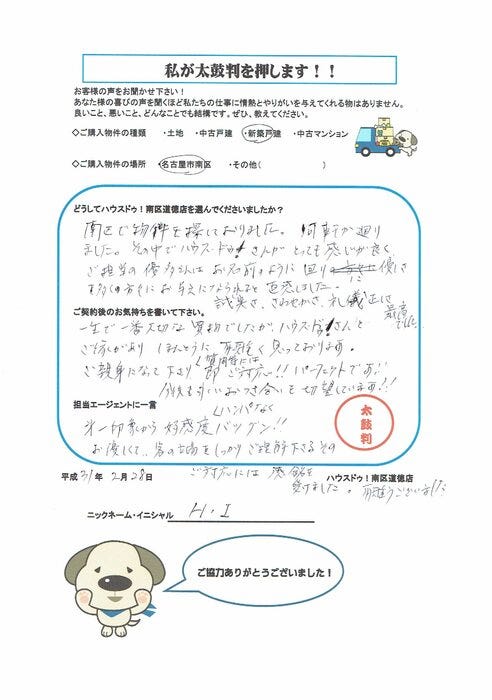 私が太鼓判を押します！！
お客様の声をお聞かせ下さい！
あなた様の喜びの声を聞くほど私たちの仕事に情熱とやりがいを与えてくれる物はありません。
良いこと、悪いこと、どんなことでも結構です。ぜひ、教えてください。
◇ご購入物件の種類　・土地　・中古戸建　・新築戸建　・中古マンション
◇ご購入物件の場所　・名古屋市南区　・その他(　　　　　)
どうしてハウスドゥ！南区道徳店を選んでくださいましたか？
南区で物件を探しておりました。何軒か廻り
ました。その中でハウスドゥ！さんがとっても感じが良く、
ご担当の優多さんはお名前のように周りに優しさ
を多くの方々にお与えになられると直感しました。
誠実さ、さわやかさ、礼儀正しさ
最高でした。
ご契約後のお気持ちを書いて下さい。
一生で一番大切な買物でしたが、ハウスドゥ！さんと
ご縁があり ほんとうに 有難く思っております。
ご親身になって下さり 質問等には 即 ご対応!! パーフェクトです!!
今後も末永いおつき合いを切望しています!!
担当エージェントに一言
ハンパなく
第一印象から 好感度 バツグン!!
お優しくて、客の立場をしっかりご理解下さるその
ご対応には 感銘を
受けました。有難うございました
太鼓判
平成31年 2月28日
ハウスドゥ！南区道徳店
ニックネーム・イニシャル　H・I
ご協力ありがとうございました！